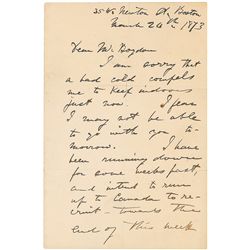 Newton St, Boston
March 24th 1893
Dear Mr. Bogdon
I am sorry that
a bad cold compels
me to keep indoors
just now. I fear
I may not be able
to go with you to-
morrow. I have
been running down
for some weeks past,
and intend to run
up to Canada to re-
cruit - towards the
end of this week